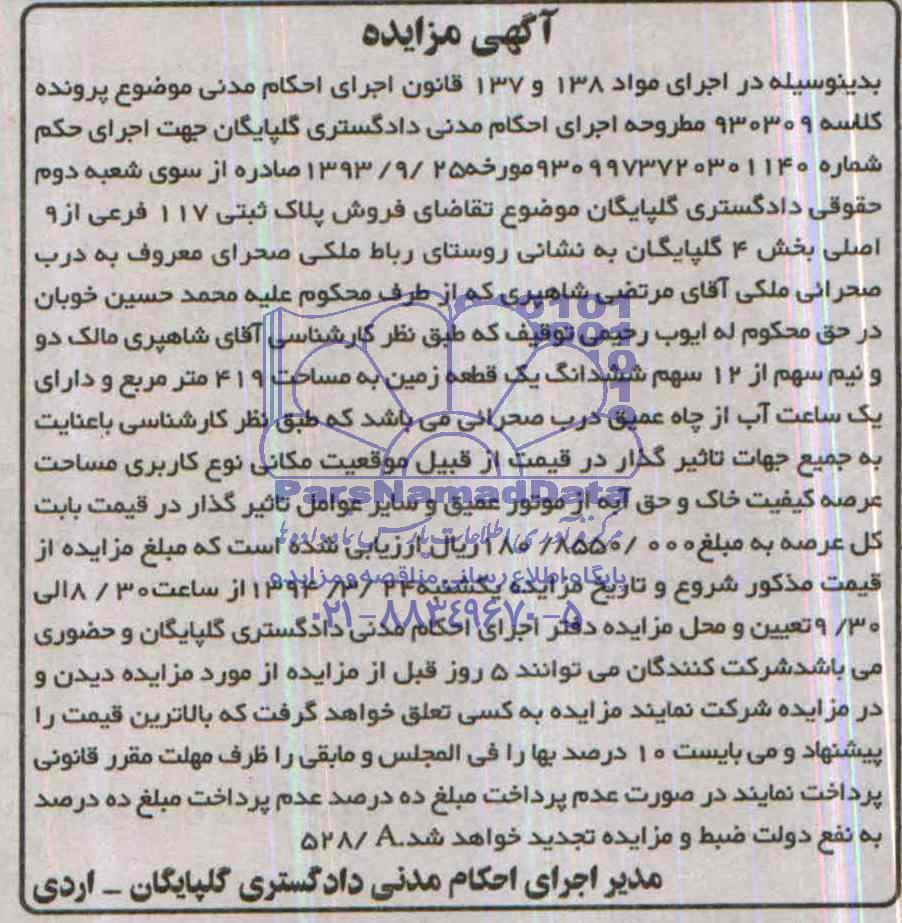 آگهی مزایده
بدینوسیله در اجرای مواد ۱۳۸ و ۱۳۷ قانون اجرای احکام مدنی موضوع پرونده
کلاسه ۹۳۰۳۰۹ مطروحه اجرای احکام مدنی دادگستری گلپایگان جهت اجرای حکم
شماره ۹۳۰۹۹۷۳۷۲۰۳۰۱۱۴۰مورخه۲۵ /۹/ ۱۳۹۳صادره از سوی شعبه دوم
حقوقی دادگستری گلپایگان موضوع تقاضای فروش پلاک ثبتی ۱۱۷ فرعی از۹
اصلی بخش ۴ گلپایگان به نشانی روستای رباط ملکی صحرای معروف به درب
صحرائی ملکی آقای مرتضی شاهپری که از طرف محکوم علیه محمد حسین خوبان
در حق محکوم له ایوب رحیمی توقیف که طبق نظر کارشناسی آقای شاهپری مالک دو
و نیم سهم از ۱۲ سهم ششدانگ یک قطعه زمین به مساحت ۴۱۹ متر مربع و دارای
یک ساعت آب از چاه عمیق درب صحرائی می باشد که طبق نظر کارشناسی باعنایت
به جمیع جهات تاثیر گذار در قیمت از قبیل موقعیت مکانی نوع کاربری مساحت
عرصه کیفیت خاک و حق آبه از موتور عمیق و سایر عوامل تاثیر گذار در قیمت بابت
کل عرصه به مبلغ۰۰۰ /۸۵۵۰/ ۱۸۰ریال ارزیابی شده است که مبلغ مزایده از
قیمت مذکور شروع و تاریخ مزایده یکشنبه۲۴ /۳/ ۱۳۹۴از ساعت۳۰ / ۸الی
۳۰/ ۹تعیین و محل مزایده دفتر اجرای احکام مدنی دادگستری گلپایگان و حضوری
می باشدشرکت کنندگان می توانند ۵ روز قبل از مزایده از مورد مزایده دیدن و
در مزایده شرکت نمایند مزایده به کسی تعلق خواهد گرفت که بالاترین قیمت را
پیشنهاد و می بایست ۱۰ درصد بها را فی المجلس و مابقی را ظرف مهلت مقرر قانونی
پرداخت نمایند در صورت عدم پرداخت مبلغ ده درصد عدم پرداخت مبلغ ده درصد
به نفع دولت ضبط و مزایده تجدید خواهد شد.A /۵۲۸
مدیر اجرای احکام مدنی دادگستری گلپایگان _ اردی
ParsNamadData
مرکز فرآوری اطلاعات پارس نماد داده ها
پایگاه اطلاع رسانی مناقصه و مزایده
۰۲۱-۸۸۳۴۹۶۷۰-۵